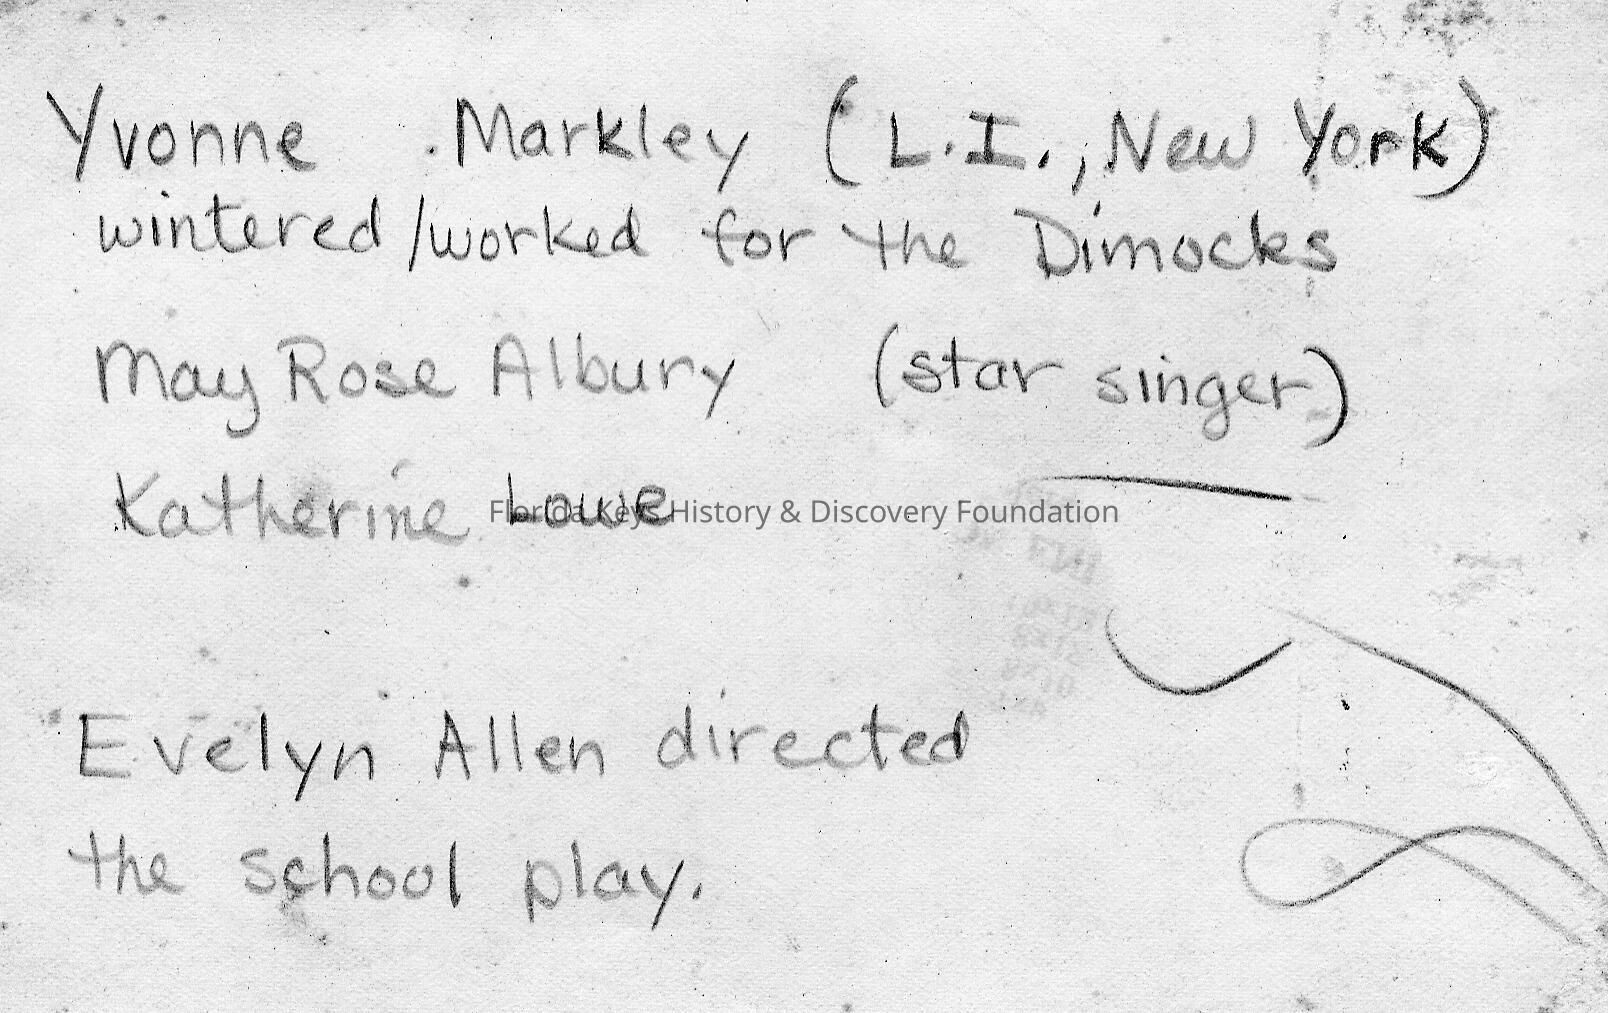 Yvonne Markley (L.I., New York)
wintered/worked for the Dimocks
May Rose Albury (star singer)
Katherine Lowe
Florida Keys History & Discovery Foundation
Evelyn Allen directed
the school play.